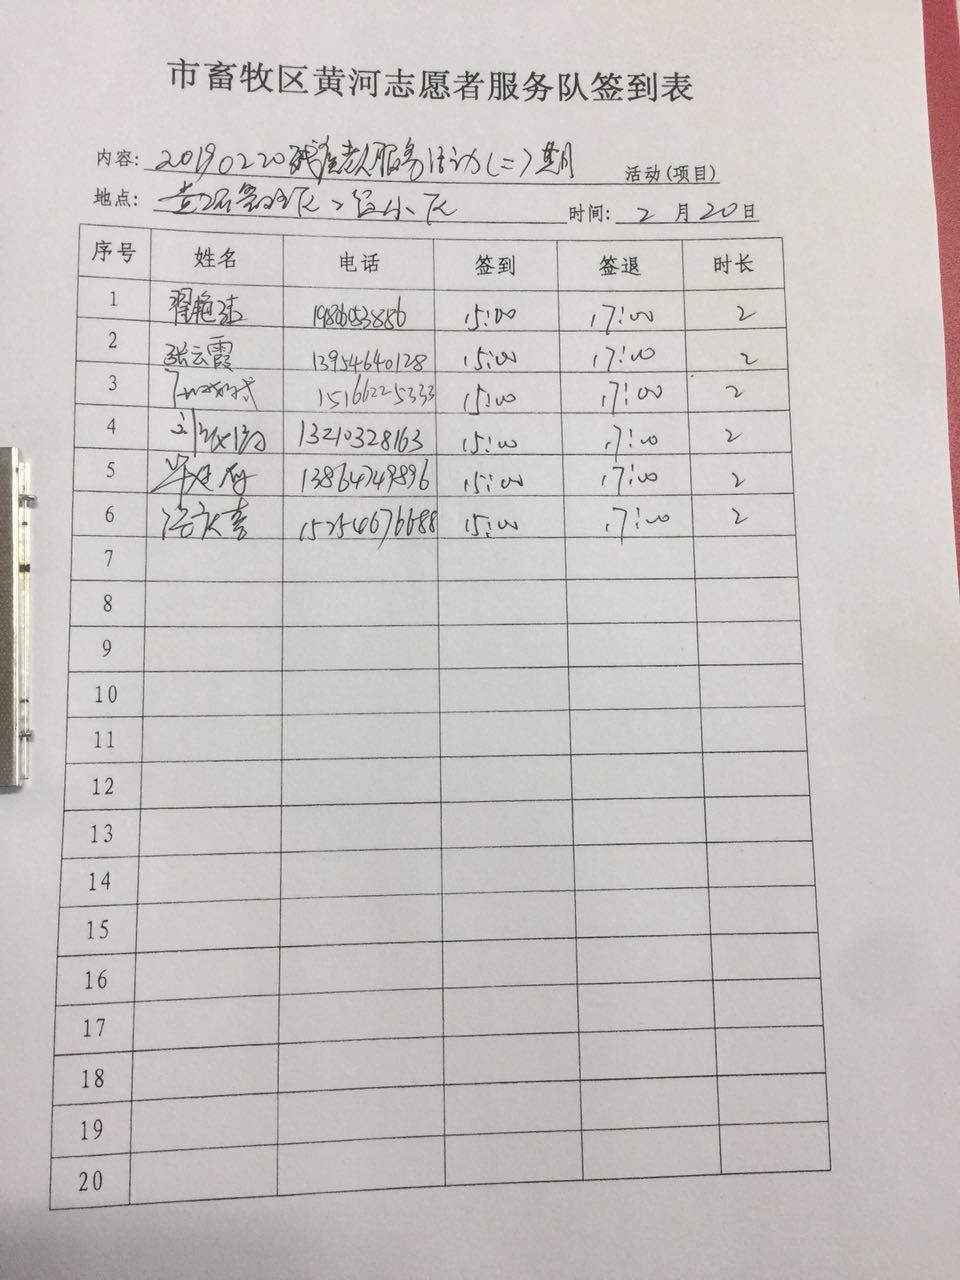 市畜牧区黄河志愿者服务队签到表
内容: 20190220 老人服务活动(二)期 活动(项目)
地点: 小区 时间: 2 月 20 日
序号 姓名 电话 签到 签退 时长
1 15:00 17:00 2
2 张云霞 13954640128 15:00 17:00 2
3 15166225333 15:00 17:00 2
4 13210328163 15:00 17:00 2
5 13864749896 15:00 17:00 2
6 15254676688 15:00 17:00 2
7
8
9
10
11
12
13
14
15
16
17
18
19
20